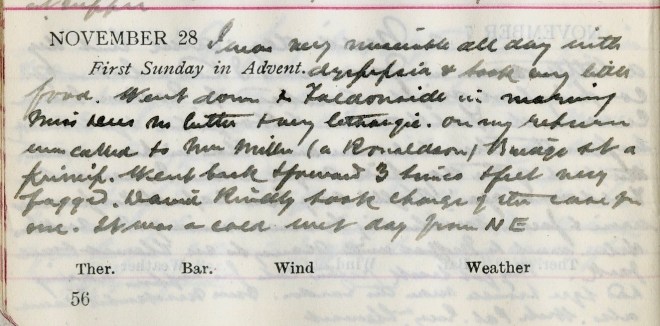 NOVEMBER 28 I was very miserable all day with
First Sunday in Advent. dyspepsia & took very little
food. Went down to Faldonside in morning
Miss no better & very lethargic. On my return
was called to Mrs Miller (a Ronaldson) Bridge St a
primip. Went back & forward 3 times & felt very
fagged. Davie kindly took charge of the case for
me. It was a cold wet day from NE
Ther. Bar. Wind Weather
56